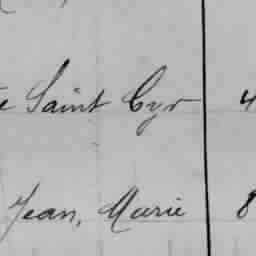 e Saint Cyr 4
Jean, Marie 8